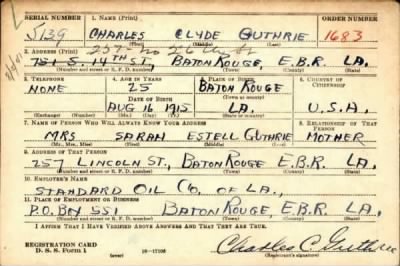 SERIAL NUMBER 1. NAME (Print) ORDER NUMBER
S139 CHARLES CLYDE GUTHRIE 1683
(First) (Middle) (Last)
257 no 26th St
2. ADDRESS (Print)
751 S. 14TH ST, BATON ROUGE, E.B.R. LA.
(Number and street or R. F. D. number) (Town) (County) (State)
3. TELEPHONE 4. AGE IN YEARS 5. PLACE OF BIRTH 6. COUNTRY OF CITIZENSHIP
NONE 25 BATON ROUGE
DATE OF BIRTH (Town or county)
AUG 16 1915 LA. U.S.A.
(Exchange) (Number) (Mo.) (Day) (Yr.) (State or country)
7. NAME OF PERSON WHO WILL ALWAYS KNOW YOUR ADDRESS 8. RELATIONSHIP OF THAT PERSON
MRS SARAH ESTELL GUTHRIE MOTHER
(Mr., Mrs., Miss) (First) (Middle) (Last)
9. ADDRESS OF THAT PERSON
257 LINCOLN ST, BATON ROUGE E.B.R. LA,
(Number and street or R. F. D. number) (Town) (County) (State)
10. EMPLOYER'S NAME
STANDARD OIL CO. OF LA.,
11. PLACE OF EMPLOYMENT OR BUSINESS
P.O. BOX 551 BATON ROUGE, E.B.R. LA,
(Number and street or R. F. D. number) (Town) (County) (State)
I AFFIRM THAT I HAVE VERIFIED ABOVE ANSWERS AND THAT THEY ARE TRUE.
REGISTRATION CARD
D. S. S. Form 1 Charles C. Guthrie
(Registrant's signature)